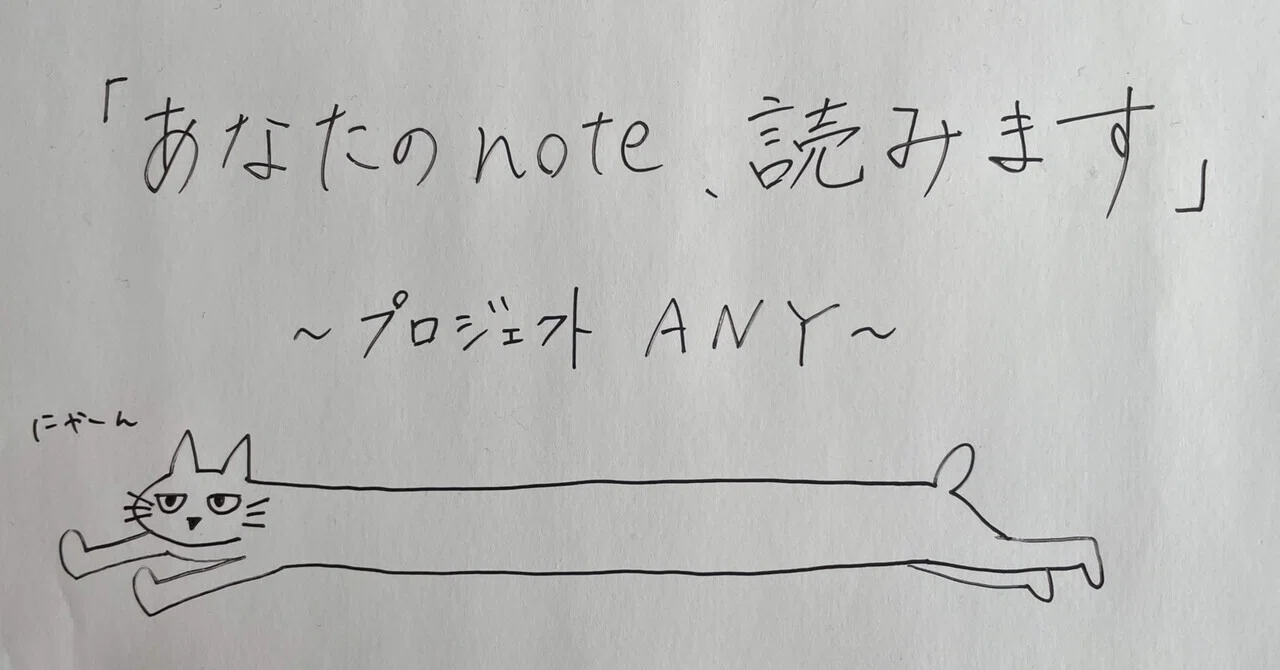 「あなたのnote、読みます」
～プロジェクト ANY～
にゃーん